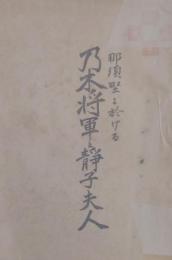 那須野に於ける
乃木将軍と静子夫人